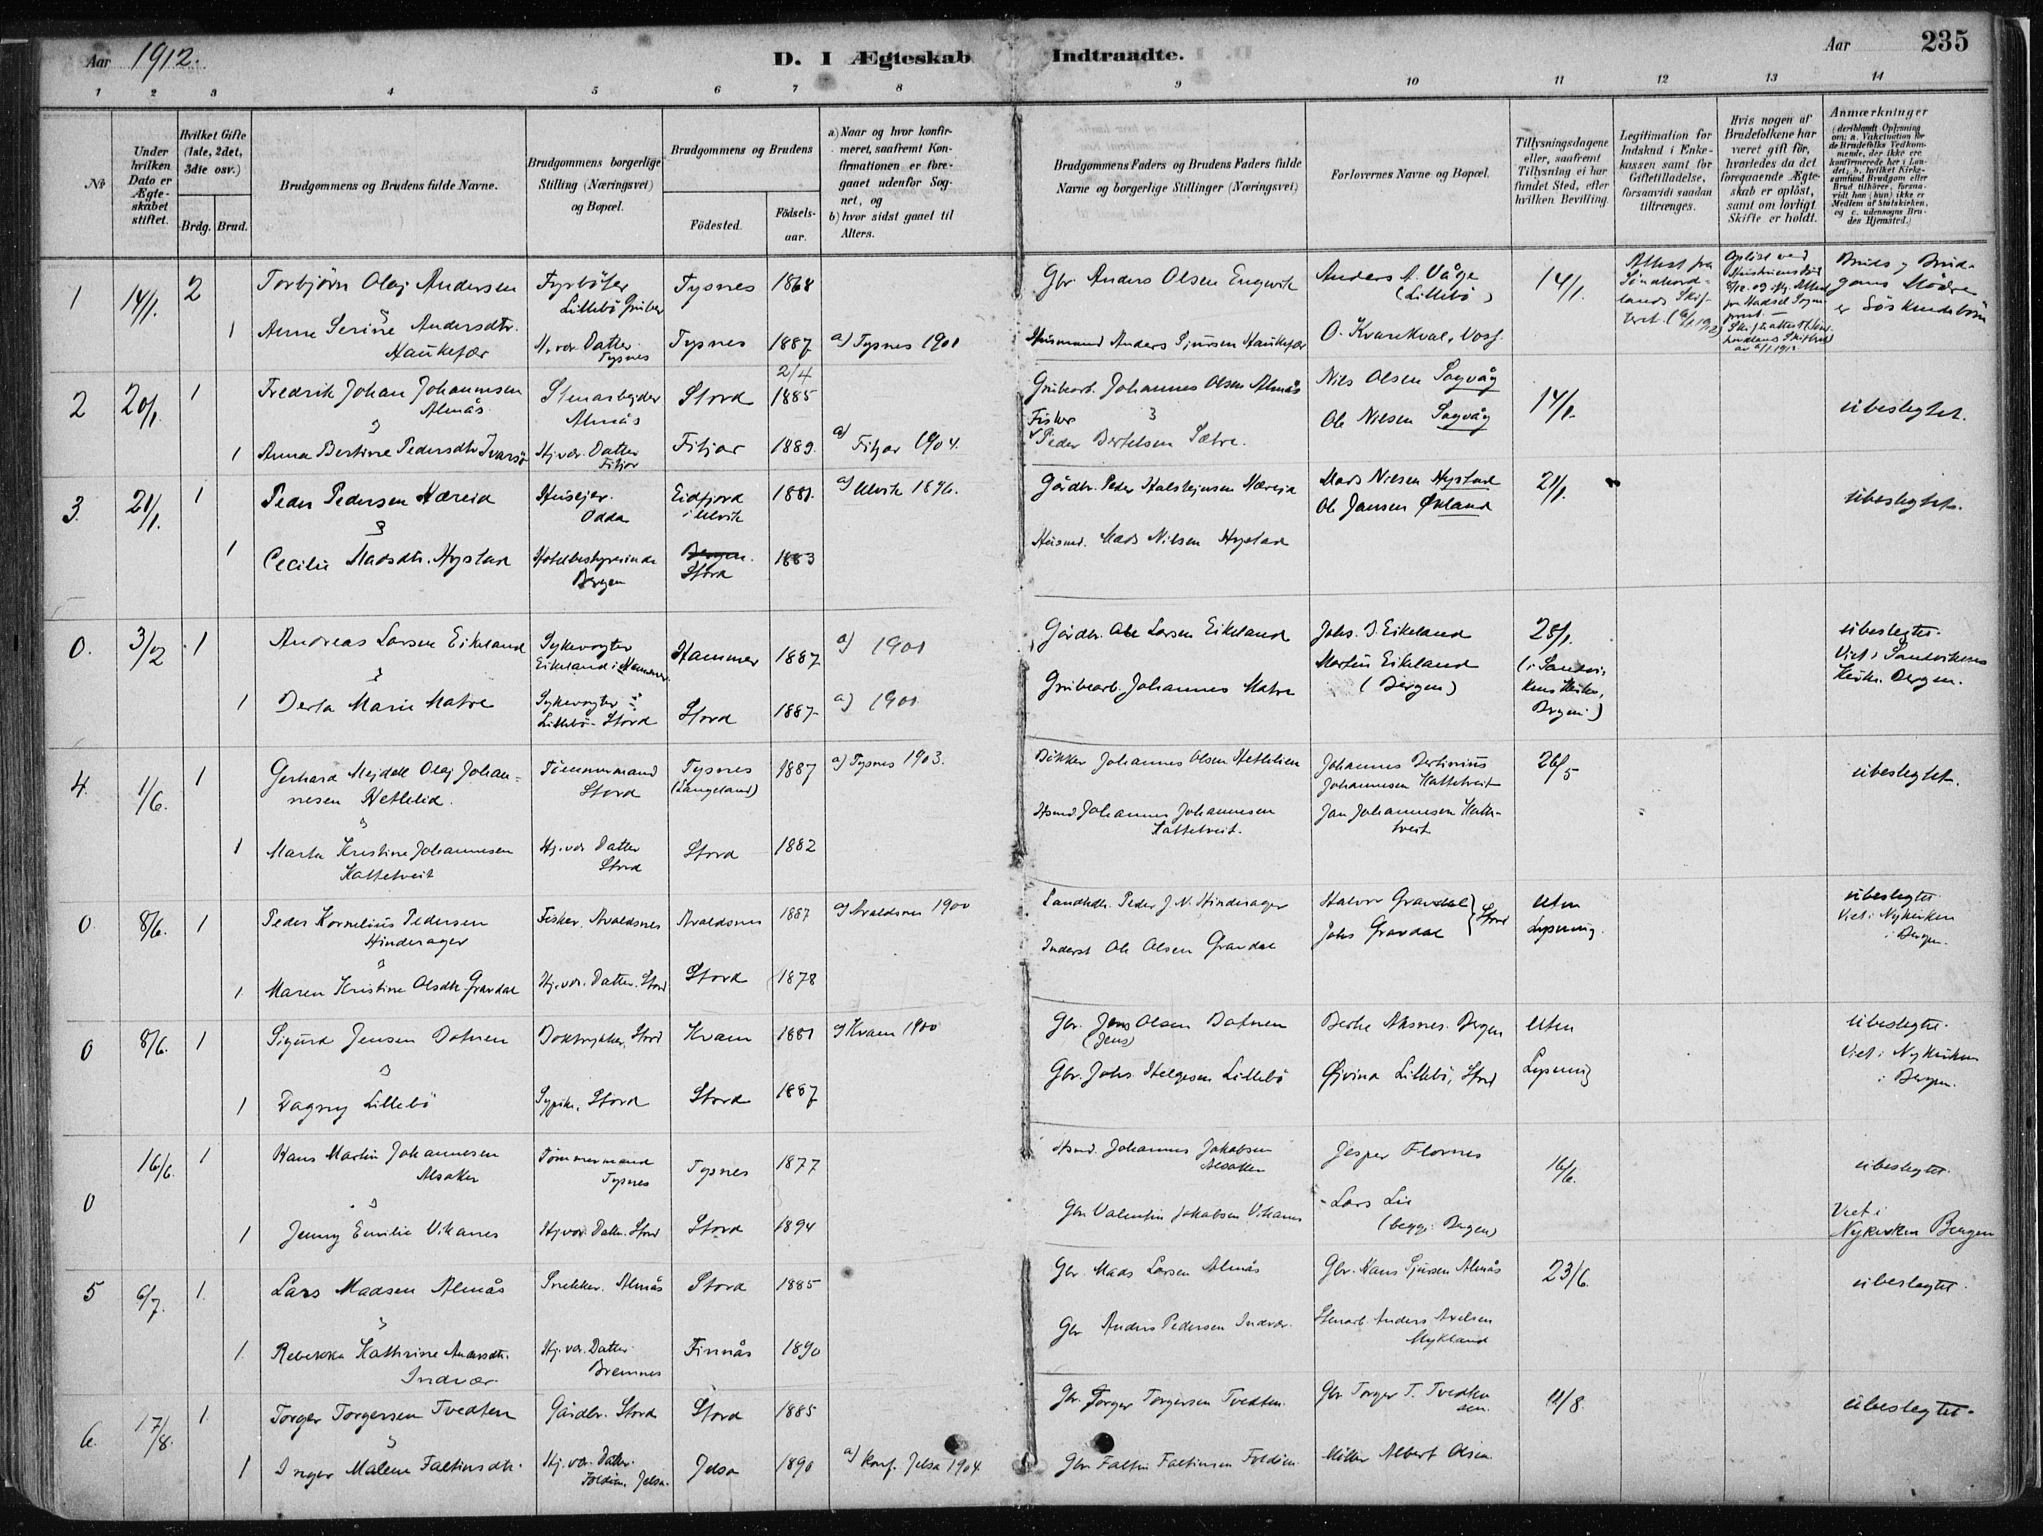 Aar 1912.
D. I Ægteskab Indtraadte.
Aar
235
1 2 3 4 5 6 7 8 9 10 11 12 13 14
No
Under hvilken Dato er Ægteskabet stiftet.
Hvilket Gifte (1ste, 2det, 3die osv.)
Brdg. Brud.
Brudgommens og Brudens fulde Navne.
Brudgommens borgerlige Stilling (Næringsvei) og Bopæl.
Brudgommens og Brudens
Födested.
Födselsaar.
a) Naar og hvor konfirmeret, saafremt Konfirmationen er foregaaet udenfor Sognet, og
b) hvor sidst gaaet til Alters.
Brudgommens Faders og Brudens Faders fulde Navne og borgerlige Stillinger (Næringsvei)
Forlovernes Navne og Bopæl.
Tillysningsdagene eller, saafremt Tillysning ei har fundet Sted, efter hvilken Bevilling.
Legitimation for Indskud i Enkekassen samt for Giftetilladelse, forsaavidt saadan tiltrænges.
Hvis nogen af Brudefolkene har været gift før, hvorledes da det foregaaende Ægteskab er oplöst, samt om lovligt Skifte er holdt.
Anmærkninger
1 14/1. 2 Torbjørn Olaj Andersen Fyrbøter Lillebö Gruber Tysnes 1868 Gbr. Anders Olsen Engevik Anders A. Våge (Lillebö) 14/1. Attest fra Söndhordlands Skifteret.
Bruds og Brudgoms Mödre er Söskendebörn
1 Anne Serine Andersdtr. Haukefær H.v.r. Datter Tysnes Tysnes 1887 a) Tysnes 1901 Husmand Anders Sjursen Haukefær O. Kvarekval, Voss.
2 20/1. 1 Fredrik Johan Johannesen Almås Stenarbejder Almås Stord 2/4 1885 Grubearb. Johannes Olsen Almås Nils Olsen Sagvåg 14/1. ubeslegtet.
1 Anna Bertine Pedersdtr Ivarsö Hj.vær. Datter Fitjar Fitjar 1889. a) Fitjar 1904. Fisker Peder Bertelsen Sætre. Ole Nielsen Sagvåg
3. 21/1. 1 Peder Pedersen Hæreid Huseier. Odda Eidfjord i Ulvik 1881. a) Ulvik 1896. Gårdbr. Peder Halstejnsen Hæreid Mads Nielsen Hystad 21/1. ubeslegtet.
1 Cecilie Madsdtr. Hystad Hotelbestyrerinde Bergen Bergen. Stord 1883 Husmd. Mads Nilsen Hystad Ole Jansen Økland
0. 3/2 1 Andreas Larsen Eikeland Sykevogter Eikeland i Hammer Hammer 1887 a) 1901 Gårdbr. Ole Larsen Eikeland Johs. J. Eikeland 25/1. (i Sandvikens Kirke, Bergen) ubeslegtet. Viet i Sandvikens Kirke. Bergen.
1 Berta Marie Matre Sykevogter Lillebö Stord Stord 1887 a) 1901 Grubearb. Johannes Matre Martin Eikeland (Bergen)
4. 1/6. 1 Gerhard Mejdell Olaj Johannesen Hetlelid. Tömmermand Stord Tysnes (Langeland) 1887 a) Tysnes 1903. Bökker Johannes Olsen Hetlelien Johannes Bertinius Johannesen Hattetveit 26/5 ubeslegtet.
1 Marta Kristine Johannesen Hattetveit Hj.vær. Datter Stord Stord 1882 Hsmd Johannes Johannesen Hattetveit. Jan Johannesen Hattetveit
0. 8/6. 1 Peder Kornelius Pedersen Hinderager Fisker, Avaldsnes Avaldsnes 1887 a) Avaldsnes 1900 Landhdl. Peder J. N. Hinderager Halvor Gravdal Stord uten Lysning. ubeslegtet Viet i Nykirken i Bergen.
1 Maren Kristine Olsdtr. Gravdal Hj.vær. Datter. Stord Stord 1878 Inderst Ole Olsen Gravdal Johs Gravdal
0 8/6. 1 Sigurd Jensen Botnen Boktrykker, Stord Kvam 1881 a) Kvam 1900 Gbr. Jens Olsen Botnen (Jens) Berte Aksnes. Bergen uten Lysning ubeslegtet. Viet i Nykirken i Bergen.
1 Dagny Lillebö Sypike, Stord Stord 1887 Gbr. Johs. Helgesen Lillebö Øivind Lillebö, Stord
0 16/6. 1 Hans Martin Johannesen Alsaker Tömmermand Tysnes Tysnes 1877 Hsmd. Johannes Jakobsen Alsaker Jesper Flornes 16/6. ubeslegtet.
1 Jenny Emilie Vikanes Hj.vær. Datter. Stord Stord 1894 Gbr. Valentin Jakobsen Vikanes Lars Lie (begge i Bergen) Viet i Nykirken Bergen
5 6/7. 1. Lars Madsen Almås Snekker. Almås Stord 1885 Gbr. Mads Larsen Almås Gbr. Hans Sjursen Almås 23/6. ubeslegtet.
1. Rebekka Kathrine Andersdtr. Indvær. Hj.vær. Datter Bremnes Finnås 1890 Gbr Anders Pedersen Indvær. Stenarb. Anders Axelsen Mykland
6. 17/8. 1. Torger Torgersen Tvedten Gårdbr. Stord Stord 1885 Gbr. Torger Torgersen Tvedten. Gbr. Torger T. Tvedten sen. 11/8. ubeslegtet.
1 Inger Malene Faltinsdtr. Hj.vær. Datter. Foldöen, Jelsa. Jelsa 1890 a) Konf. Jelsa 1904. Gbr. Faltin Faltinsen Foldöen Möller Albert Olsen